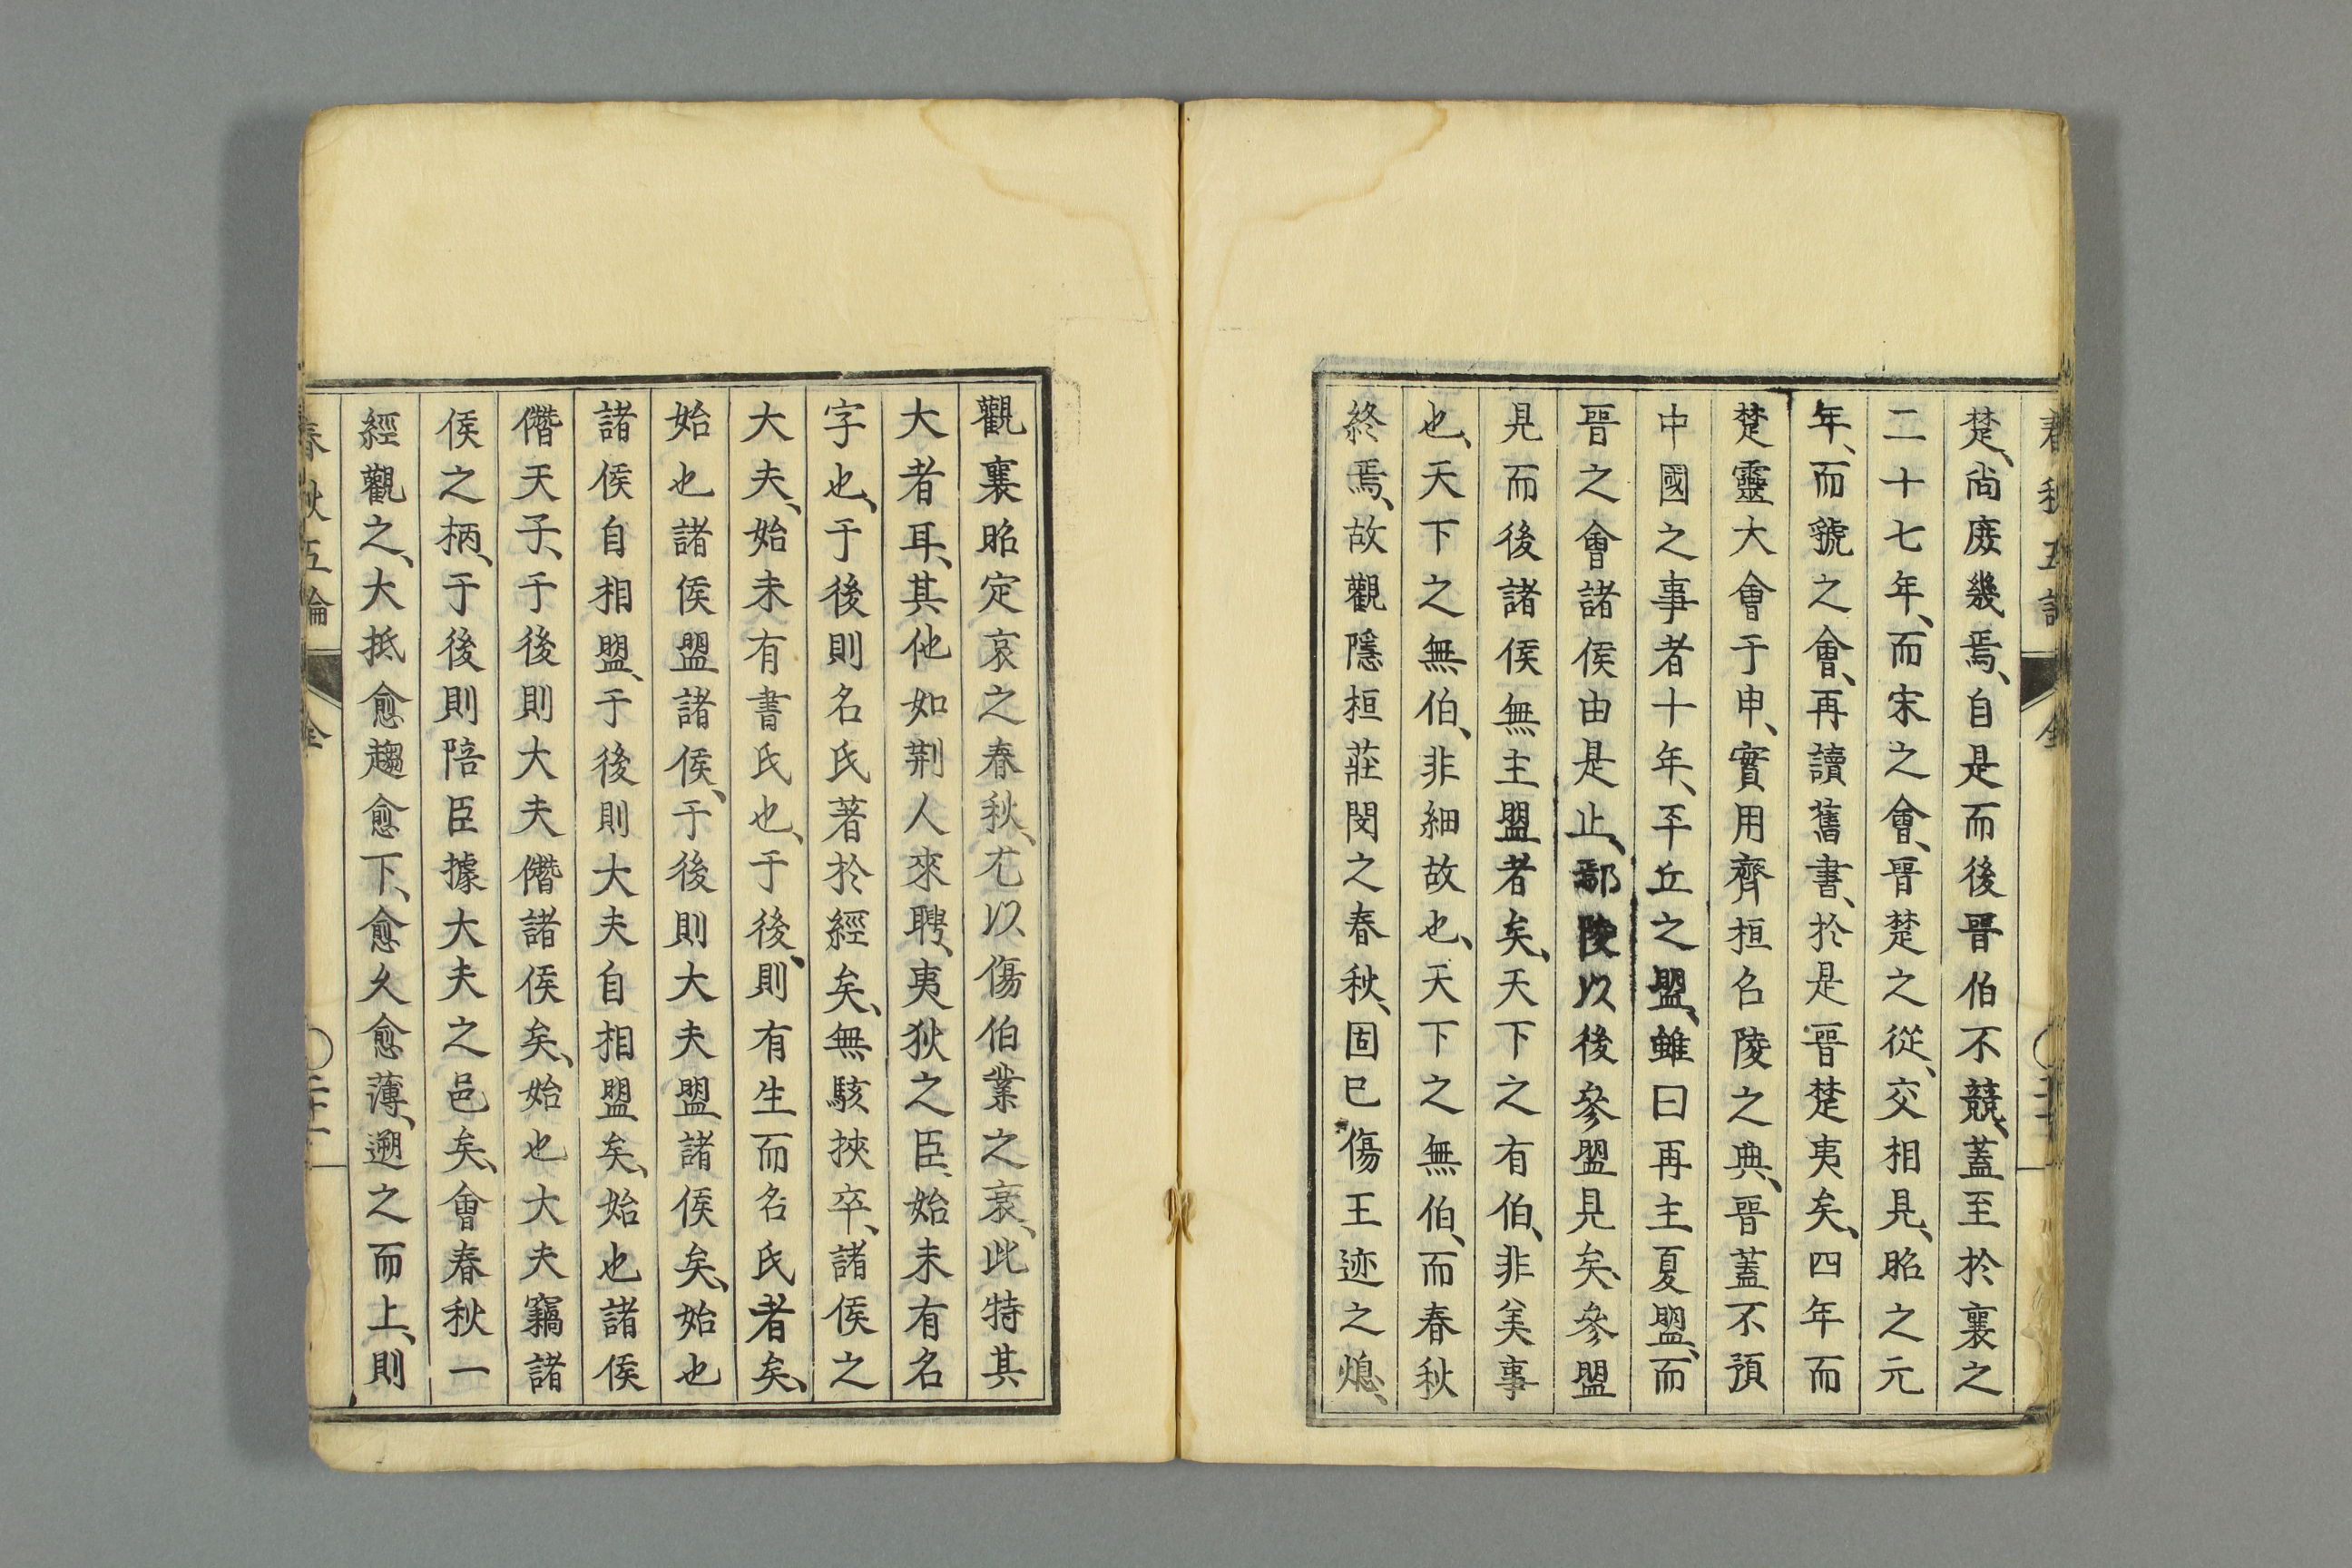 楚、尚庶幾焉、自是而後晉伯不競、蓋至於襄之
二十七年、而宋之會、晉楚之從、交相見、昭之元
年、而虢之會、再讀舊書、於是晉楚夷矣、四年而
楚靈大會于申、實用齊桓召陵之典、晉蓋不預
中國之事者十年、平丘之盟、雖曰再主夏盟、而
晉之會諸侯由是止、鄢陵以後參盟見矣、參盟
見而後諸侯無主盟者矣、天下之有伯、非美事
也、天下之無伯、非細故也、天下之無伯、而春秋
終焉、故觀隱桓莊閔之春秋、固已傷王迹之熄、
觀襄昭定哀之春秋、尤以傷伯業之衰、此特其
大者耳、其他如荆人來聘、夷狄之臣、始未有名
字也、于後則名氏著於經矣、無駭挾卒、諸侯之
大夫、始未有書氏也、于後、則有生而名氏者矣、
始也諸侯盟諸侯、于後則大夫盟諸侯矣、始也
諸侯自相盟、于後則大夫自相盟矣、始也諸侯
僭天子、于後則大夫僭諸侯矣、始也大夫竊諸
侯之柄、于後則陪臣據大夫之邑矣、會春秋一
經觀之、大抵愈趨愈下、愈久愈薄、遡之而上、則
春秋五論 全